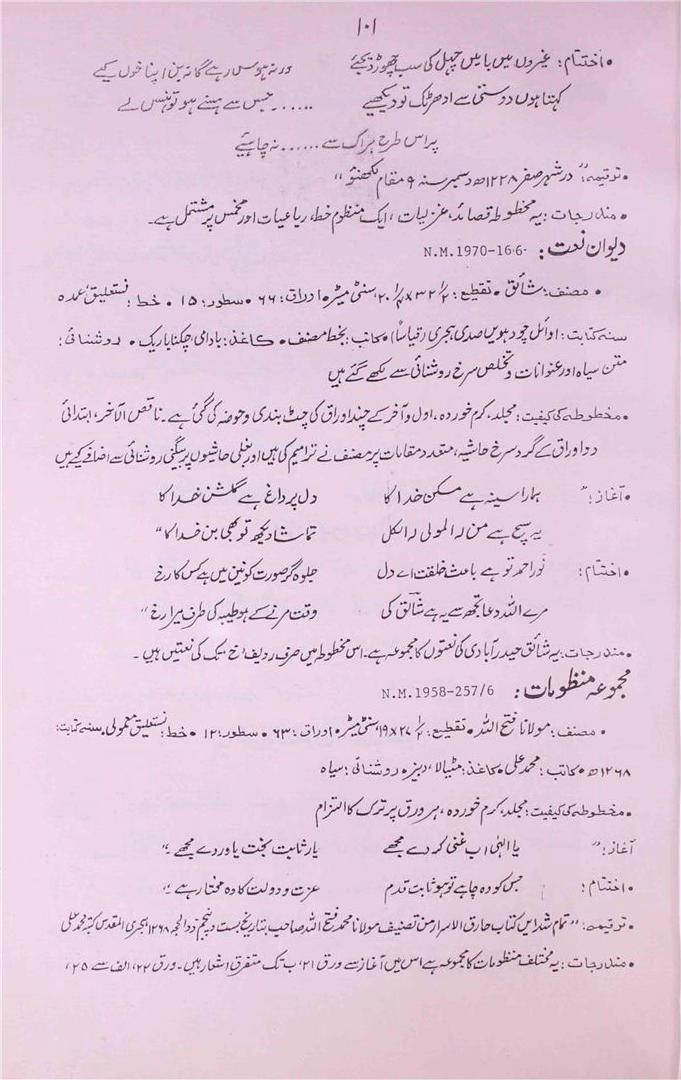 ۱۰۱
• اختتام: غیروں میں باتیں چہل کی سب چھوڑ دیجئے ورنہ ہوس رہے گا نہ بن اپنا خوں کیے
کہتا ہوں دوستی سے ادھر تو دیکھیے ...... جس سے ہنسے ہو تو ہنس لے
پر اس طرح ہر اک سے ...... نہ چاہئیے
• ترقیمہ: "در شہر صفر ۱۲۲۸ھ دسمبر سنہ ۹ مقام لکھنؤ"
• مندرجات: یہ مخطوطہ قصائد، غزلیات، ایک منظوم خط، رباعیات اور مخمس پر مشتمل ہے۔
دیوان نعت: N.M.1970-166
• مصنف: شائق • تقطیع: ۳۲ ۱/۲ × ۲۰ ۱/۲ سنٹی میٹر • اوراق: ۶۶ • سطور: ۱۵ • خط: نستعلیق عمدہ
سنہ کتابت: اوائل چودہویں صدی ہجری (قیاساً) • کاتب: بخط مصنف • کاغذ: بادامی، چکنا باریک • روشنائی:
متن سیاہ اور عنوانات و تخلص سرخ روشنائی سے لکھے گئے ہیں
• مخطوطہ کی کیفیت: مجلد، کرم خوردہ، اول و آخر کے چند اوراق کی چٹ بندی و حوضہ کی گئی ہے۔ ناقص الآخر، ابتدائی
دو اوراق کے گرد سرخ حاشیہ، متعدد مقامات پر مصنف نے ترامیم کی ہیں اور بغلی حاشیوں پر روشنائی سے اضافے کیے ہیں
• آغاز: " ہمارا سینہ ہے مسکن خدا کا دل پر داغ ہے گلشن خدا کا
یہ سچ ہے من لہ المولیٰ لہ الکل تماشا دیکھ تو بھی بن خدا کا"
• اختتام: نور احمد تو ہے باعث خلقت اے دل جلوہ گر صورت کونین میں ہے کس کا رخ
مرے اللہ دعا تجھ سے یہ ہے شائق کی وقت مرنے کے ہو طیبہ کی طرف میرا رخ"
• مندرجات: یہ شائق حیدر آبادی کی نعتوں کا مجموعہ ہے۔ اس مخطوطہ میں صرف ردیف خ تک کی نعتیں ہیں۔
مجموعہ منظومات: N.M.1958-257/6
• مصنف: مولانا فتح اللہ • تقطیع: ۲۷ ۱/۲ × ۱۹ سنٹی میٹر • اوراق: ۶۳ • سطور: ۱۲ • خط: نستعلیق معمولی • سنہ کتابت:
۱۲۶۸ھ • کاتب: محمد علی • کاغذ: مٹیالا، دبیز • روشنائی: سیاہ
• مخطوطہ کی کیفیت: مجلد، کرم خوردہ، ہر ورق پر ترک کا التزام
آغاز: " یا الٰہی اب غنی کر دے مجھے یار ثابت بخت یاور دے مجھے۔"
• اختتام: جس کو وہ چاہے تو ہو ثابت قدم عزت و دولت کا وہ مختار ہے۔"
• ترقیمہ: "تمام شد ایں کتاب حارق الاسرار من تصنیف مولانا محمد فتح اللہ صاحب بتاریخ بست و پنجم ذوالحجہ ۱۲۶۸ ہجری المقدس کتبہ محمد علی
• مندرجات: یہ مختلف منظومات کا مجموعہ ہے اس میں آغاز سے ورق ۲۱، ب تک متفرق اشعار ہیں۔ ورق ۲۲، الف سے ۲۵،